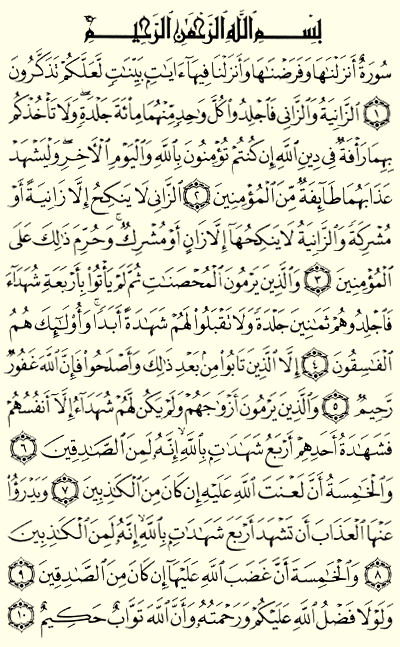 بِسْمِ ٱللَّهِ ٱلرَّحْمَٰنِ ٱلرَّحِيمِ
سُورَةٌ أَنزَلْنَٰهَا وَفَرَضْنَٰهَا وَأَنزَلْنَا فِيهَآ ءَايَٰتٍۭ بَيِّنَٰتٍ لَّعَلَّكُمْ تَذَكَّرُونَ
﴿١﴾ ٱلزَّانِيَةُ وَٱلزَّانِى فَٱجْلِدُوا۟ كُلَّ وَٰحِدٍ مِّنْهُمَا مِا۟ئَةَ جَلْدَةٍ ۖ وَلَا تَأْخُذْكُم
بِهِمَا رَأْفَةٌ فِى دِينِ ٱللَّهِ إِن كُنتُمْ تُؤْمِنُونَ بِٱللَّهِ وَٱلْيَوْمِ ٱلْءَاخِرِ ۖ وَلْيَشْهَدْ
عَذَابَهُمَا طَآئِفَةٌ مِّنَ ٱلْمُؤْمِنِينَ ﴿٢﴾ ٱلزَّانِى لَا يَنكِحُ إِلَّا زَانِيَةً أَوْ
مُشْرِكَةً وَٱلزَّانِيَةُ لَا يَنكِحُهَآ إِلَّا زَانٍ أَوْ مُشْرِكٌ ۚ وَحُرِّمَ ذَٰلِكَ عَلَى
ٱلْمُؤْمِنِينَ ﴿٣﴾ وَٱلَّذِينَ يَرْمُونَ ٱلْمُحْصَنَٰتِ ثُمَّ لَمْ يَأْتُوا۟ بِأَرْبَعَةِ شُهَدَآءَ
فَٱجْلِدُوهُمْ ثَمَٰنِينَ جَلْدَةً وَلَا تَقْبَلُوا۟ لَهُمْ شَهَٰدَةً أَبَدًا ۚ وَأُو۟لَٰٓئِكَ هُمُ
ٱلْفَٰسِقُونَ ﴿٤﴾ إِلَّا ٱلَّذِينَ تَابُوا۟ مِنۢ بَعْدِ ذَٰلِكَ وَأَصْلَحُوا۟ فَإِنَّ ٱللَّهَ غَفُورٌ
رَّحِيمٌ ﴿٥﴾ وَٱلَّذِينَ يَرْمُونَ أَزْوَٰجَهُمْ وَلَمْ يَكُن لَّهُمْ شُهَدَآءُ إِلَّآ أَنفُسُهُمْ
فَشَهَٰدَةُ أَحَدِهِمْ أَرْبَعُ شَهَٰدَٰتٍۭ بِٱللَّهِ ۙ إِنَّهُۥ لَمِنَ ٱلصَّٰدِقِينَ ﴿٦﴾
وَٱلْخَٰمِسَةُ أَنَّ لَعْنَتَ ٱللَّهِ عَلَيْهِ إِن كَانَ مِنَ ٱلْكَٰذِبِينَ ﴿٧﴾ وَيَدْرَؤُا۟
عَنْهَا ٱلْعَذَابَ أَن تَشْهَدَ أَرْبَعَ شَهَٰدَٰتٍۭ بِٱللَّهِ ۙ إِنَّهُۥ لَمِنَ ٱلْكَٰذِبِينَ
﴿٨﴾ وَٱلْخَٰمِسَةَ أَنَّ غَضَبَ ٱللَّهِ عَلَيْهَآ إِن كَانَ مِنَ ٱلصَّٰدِقِينَ ﴿٩﴾
وَلَوْلَا فَضْلُ ٱللَّهِ عَلَيْكُمْ وَرَحْمَتُهُۥ وَأَنَّ ٱللَّهَ تَوَّابٌ حَكِيمٌ ﴿١٠﴾